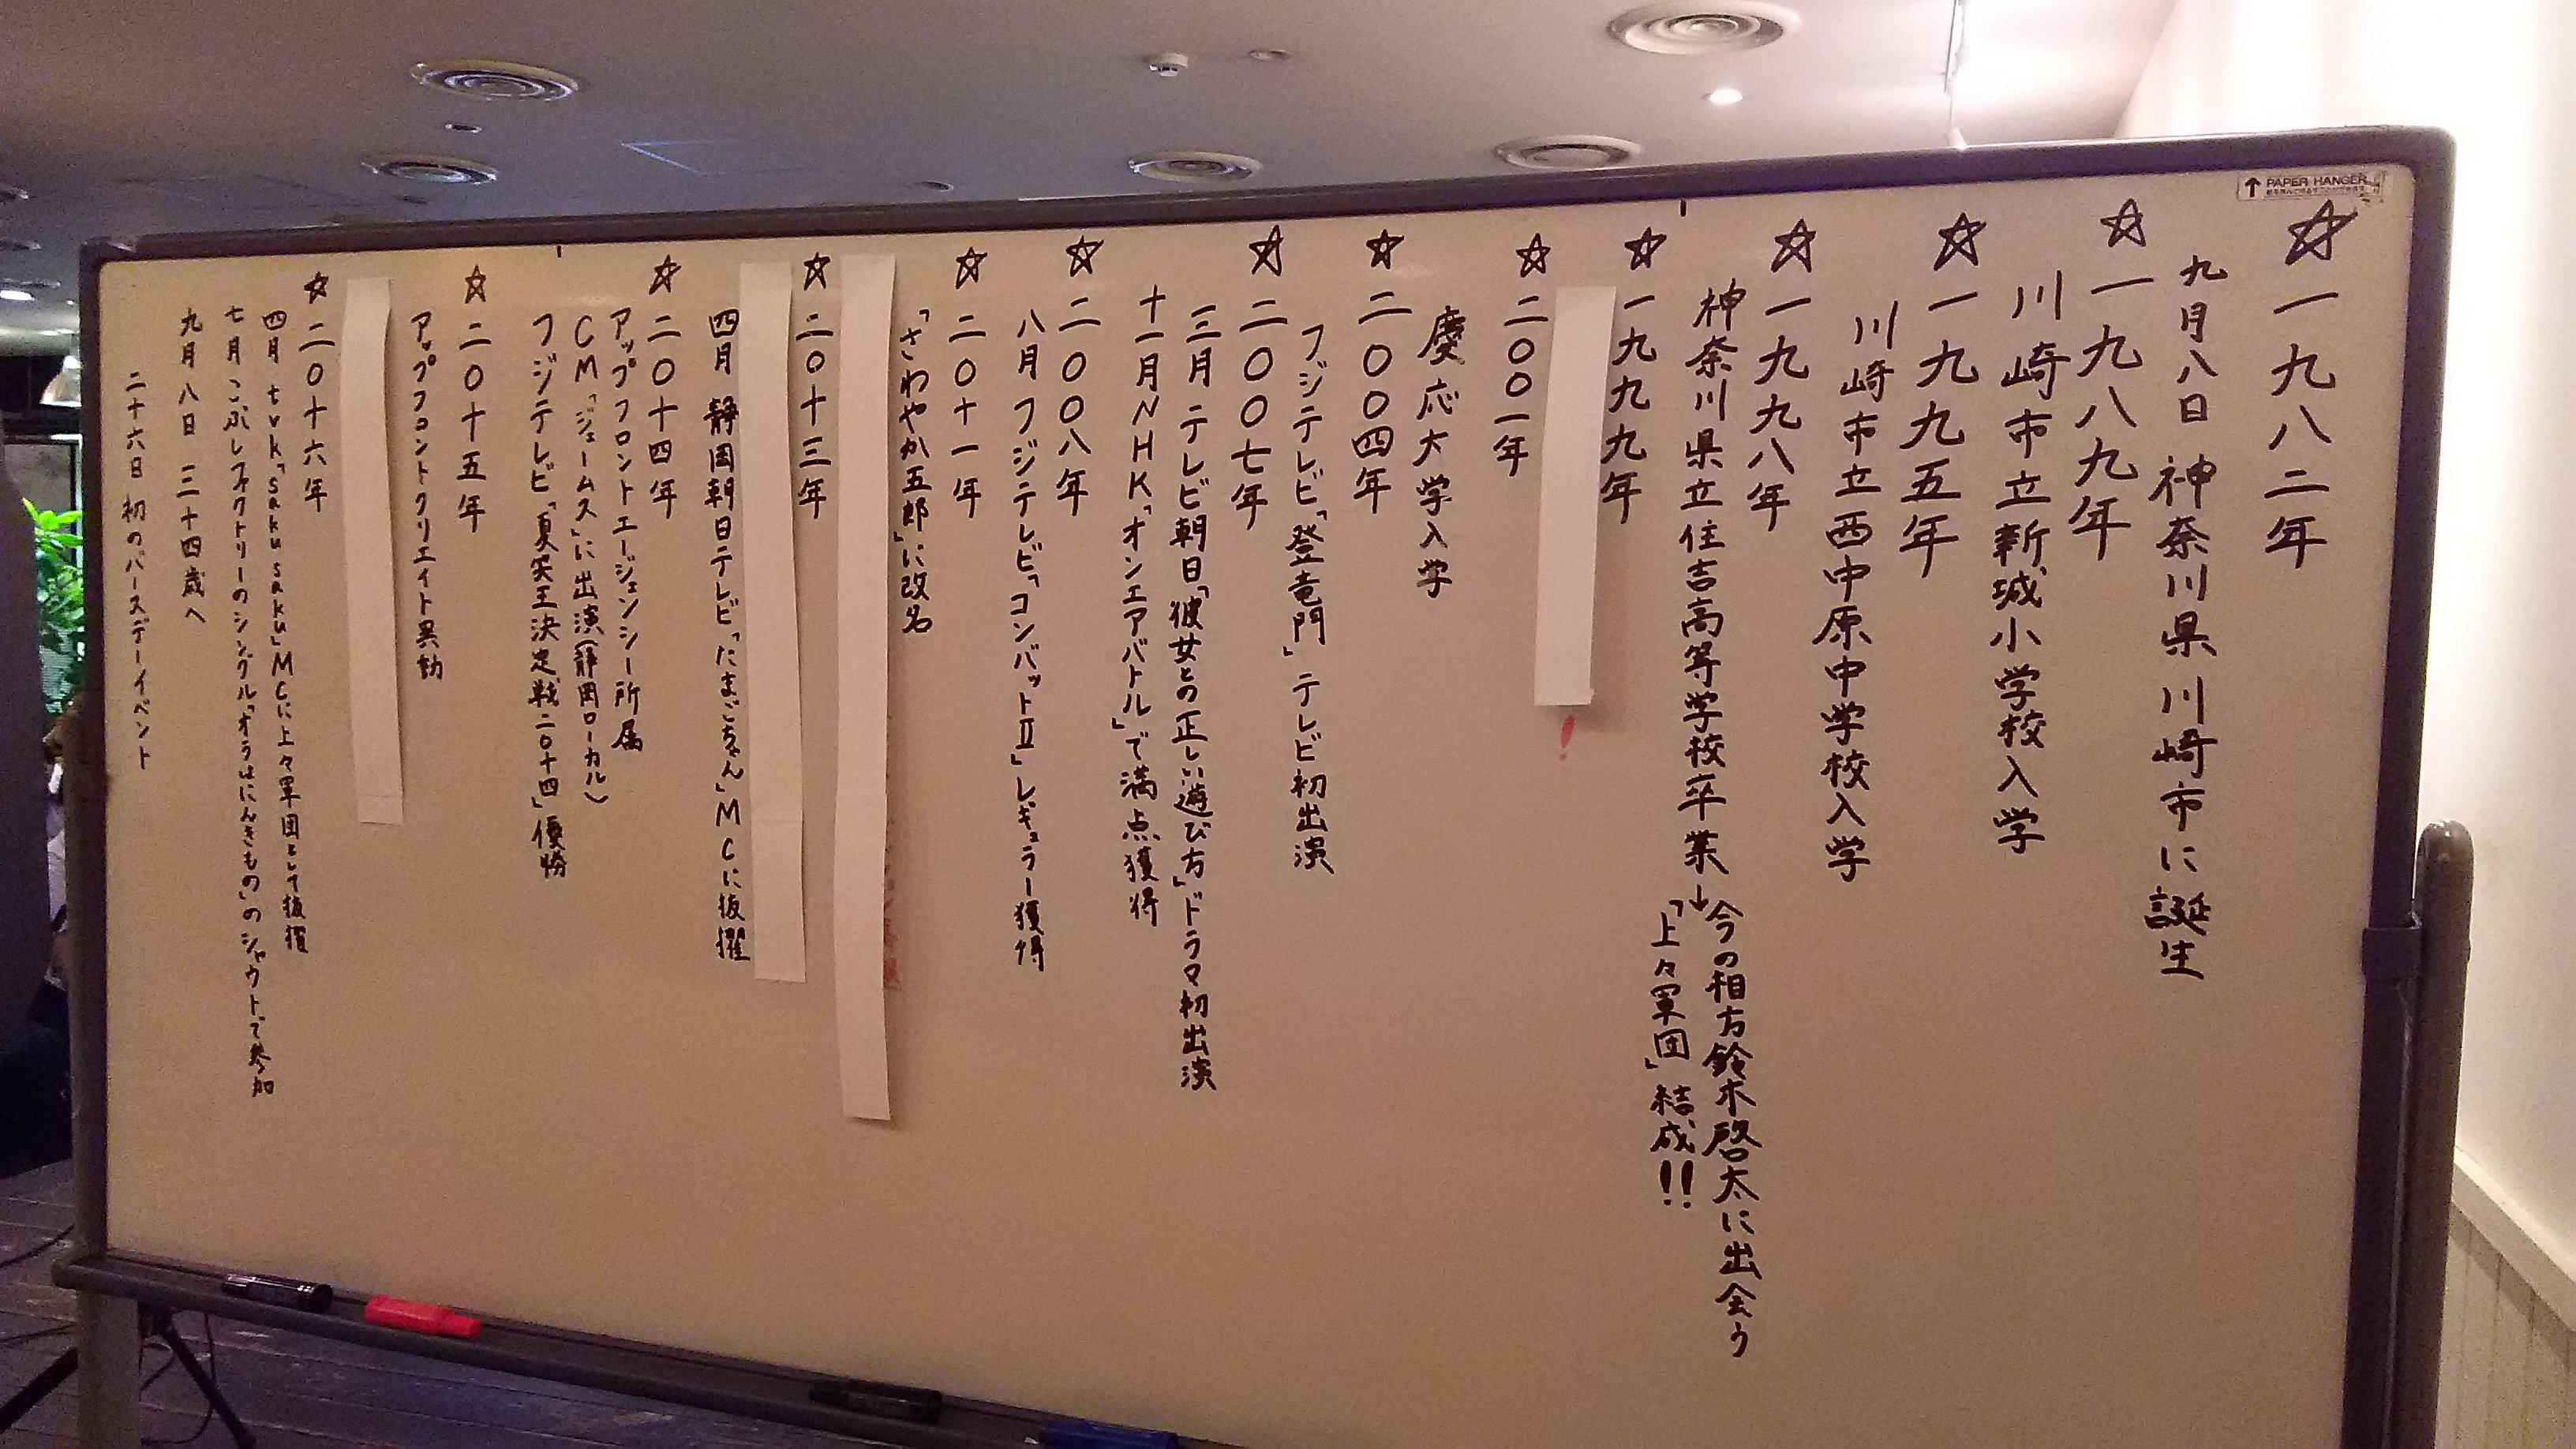 ↑ PAPER HANGER
☆一九八二年
九月八日 神奈川県川崎市に誕生
☆一九八九年
川崎市立新城小学校入学
☆一九九五年
川崎市立西中原中学校入学
☆一九九八年
神奈川県立住吉高等学校卒業→今の相方鈴木啓太に出会う
「上々軍団」結成!!
☆一九九九年
!
☆二〇〇一年
慶応大学入学
☆二〇〇四年
フジテレビ「登竜門」テレビ初出演
☆二〇〇七年
三月 テレビ朝日「彼女との正しい遊び方」ドラマ初出演
十一月NHK「オンエアバトル」で満点獲得
☆二〇〇八年
八月フジテレビ「コンバットⅡ」レギュラー獲得
☆二〇十一年
「さわやか五郎」に改名
☆二〇十三年
四月 静岡朝日テレビ「たまごちゃん」MCに抜擢
☆二〇十四年
アップフロントエージェンシー所属
CM「ジェームス」に出演(静岡ローカル)
フジテレビ「夏笑王決定戦二〇十四」優勝
☆二〇十五年
アップフロントクリエイト異動
☆二〇十六年
四月 tvk「sakusaku」MCに上々軍団として抜擢
七月こぶしファクトリーのシングル「オラはにんきもの」のシャウトで参加
九月八日 三十四歳へ
二十六日 初のバースデーイベント